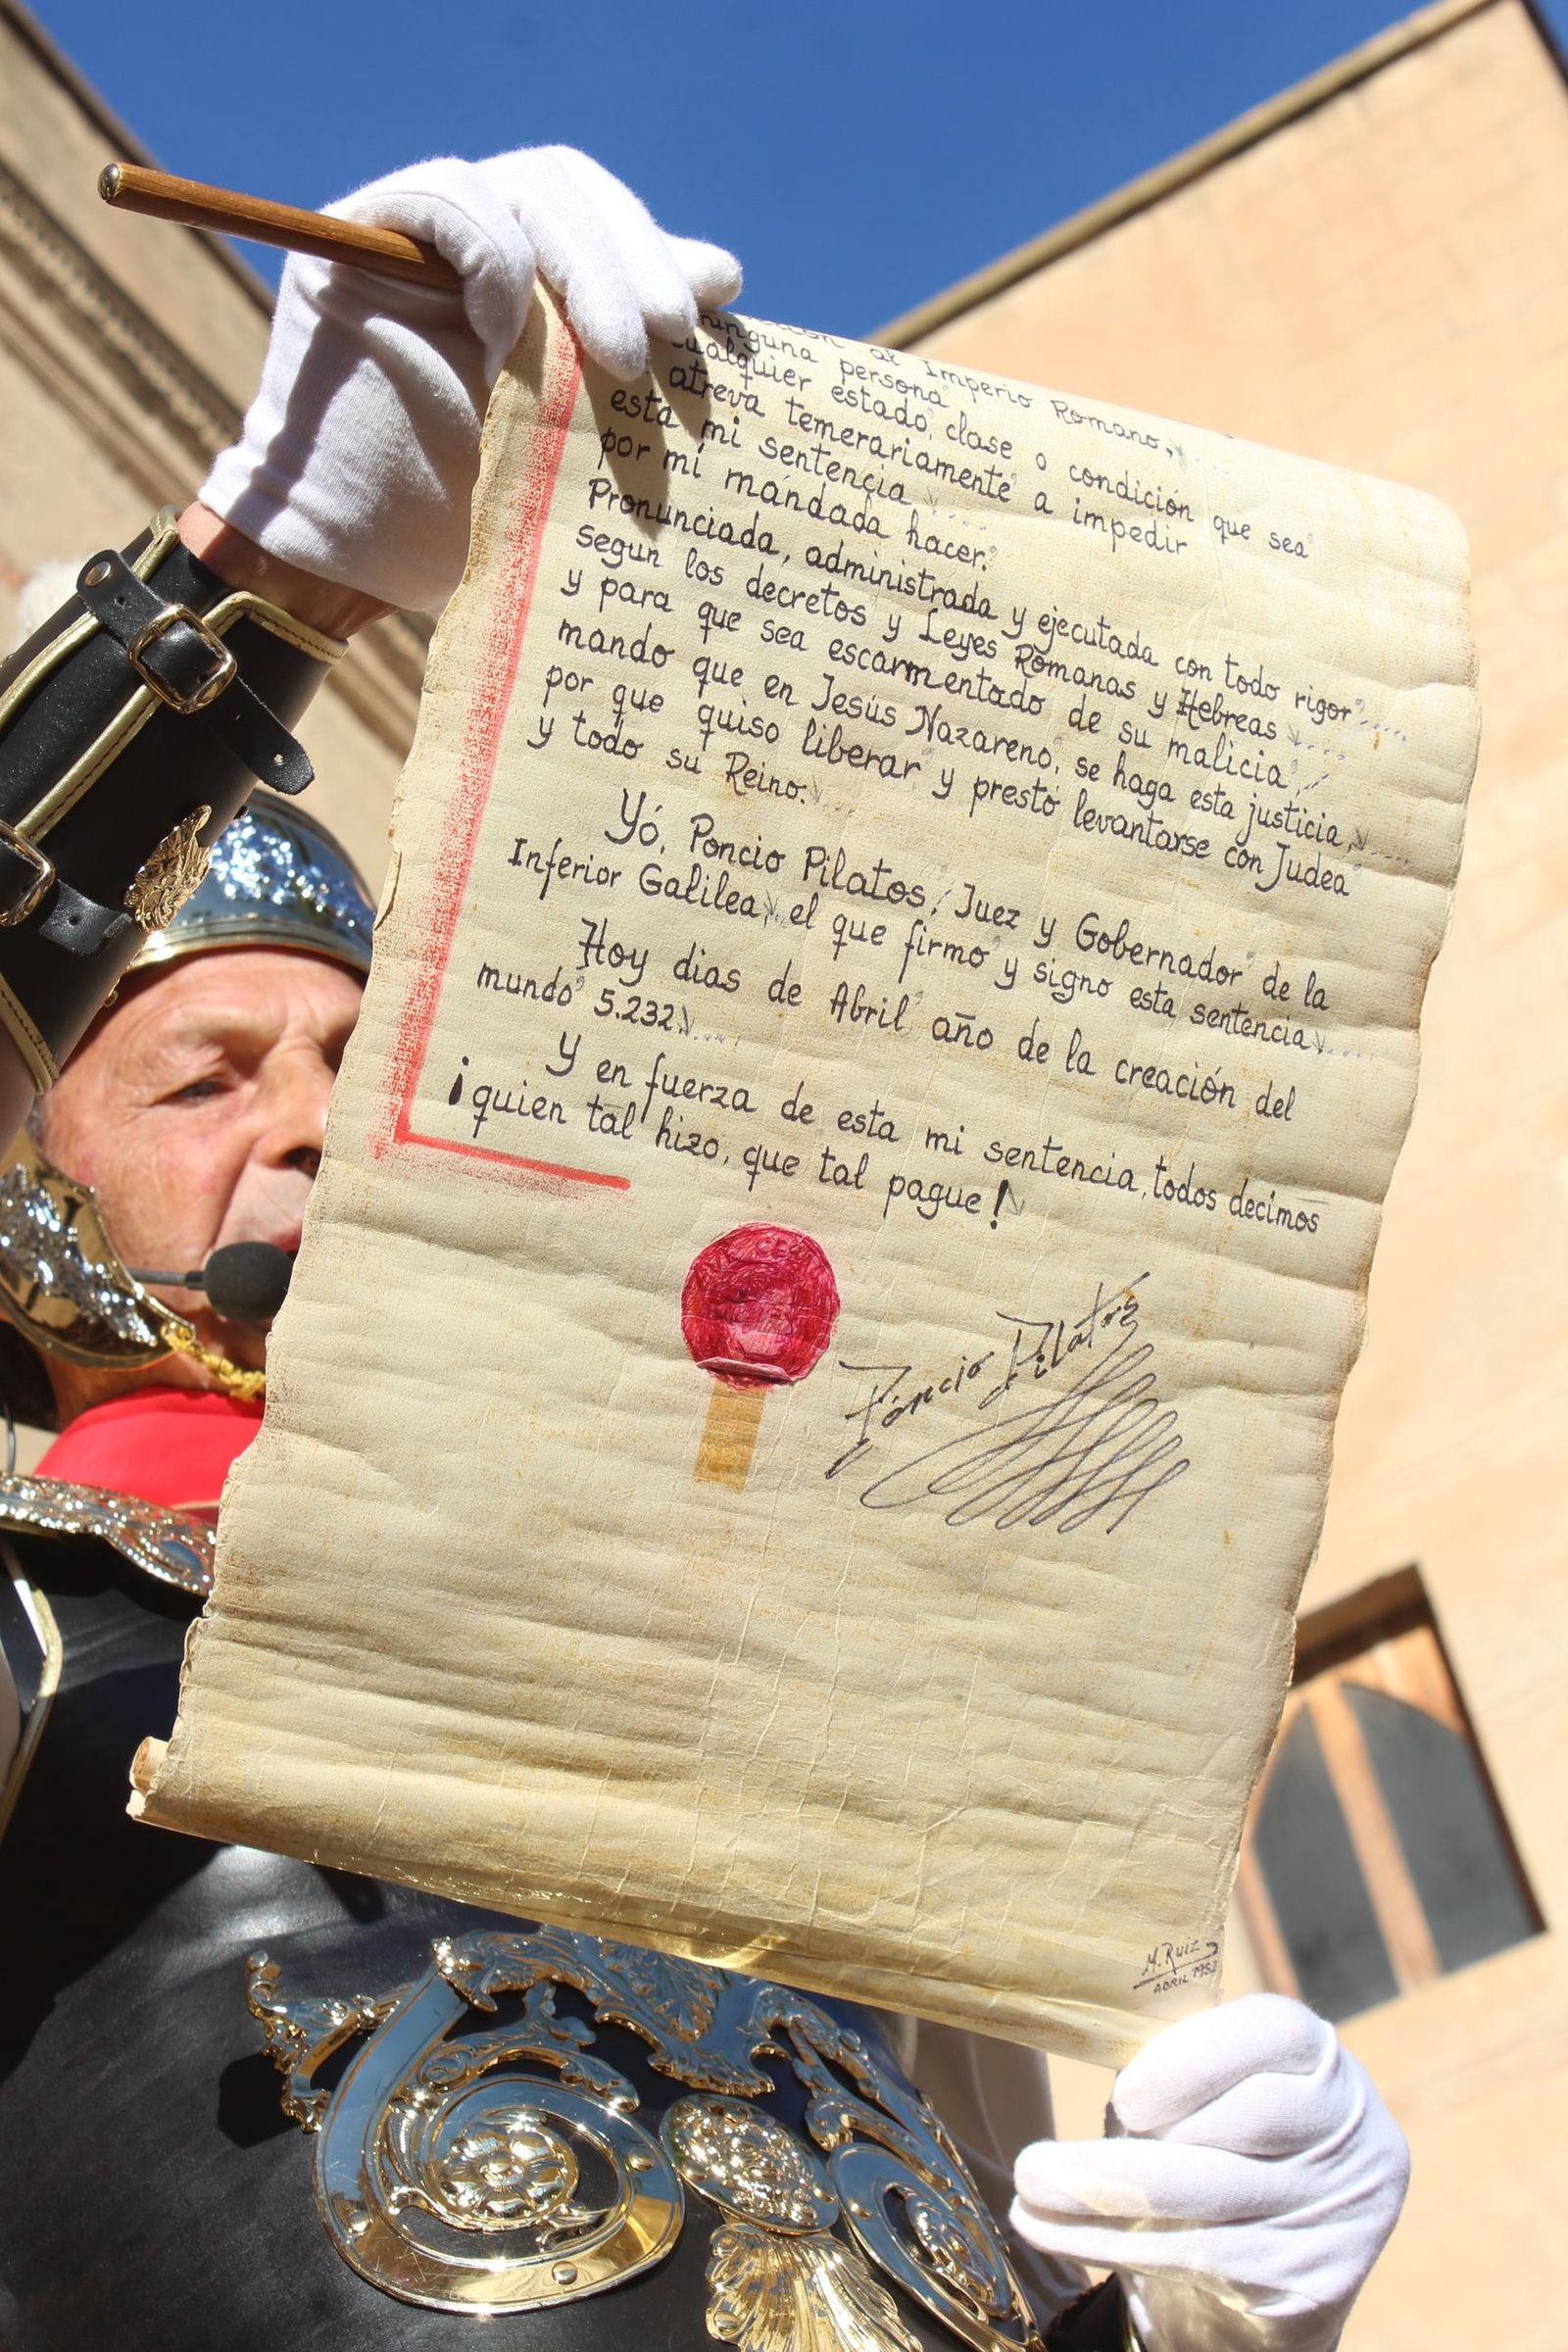 al Imperio Romano,
ninguna persona
cualquier estado, clase o condición que sea
atreva temerariamente a impedir
esta mi sentencia
por mi mandada hacer.
Pronunciada, administrada y ejecutada con todo rigor
Segun los decretos y Leyes Romanas y Hebreas
y para que sea escarmentado de su malicia,
mando que en Jesús Nazareno, se haga esta justicia,
por que quiso liberar y prestó levantarse con Judea
y todo su Reino.
Yó, Poncio Pilatos, Juez y Gobernador de la
Inferior Galilea, el que firmo y signo esta sentencia
Hoy dias de Abril año de la creación del
mundo 5.232.
Y en fuerza de esta mi sentencia, todos decimos
¡quien tal hizo, que tal pague!
Poncio Pilatos
M. Ruiz
ABRIL